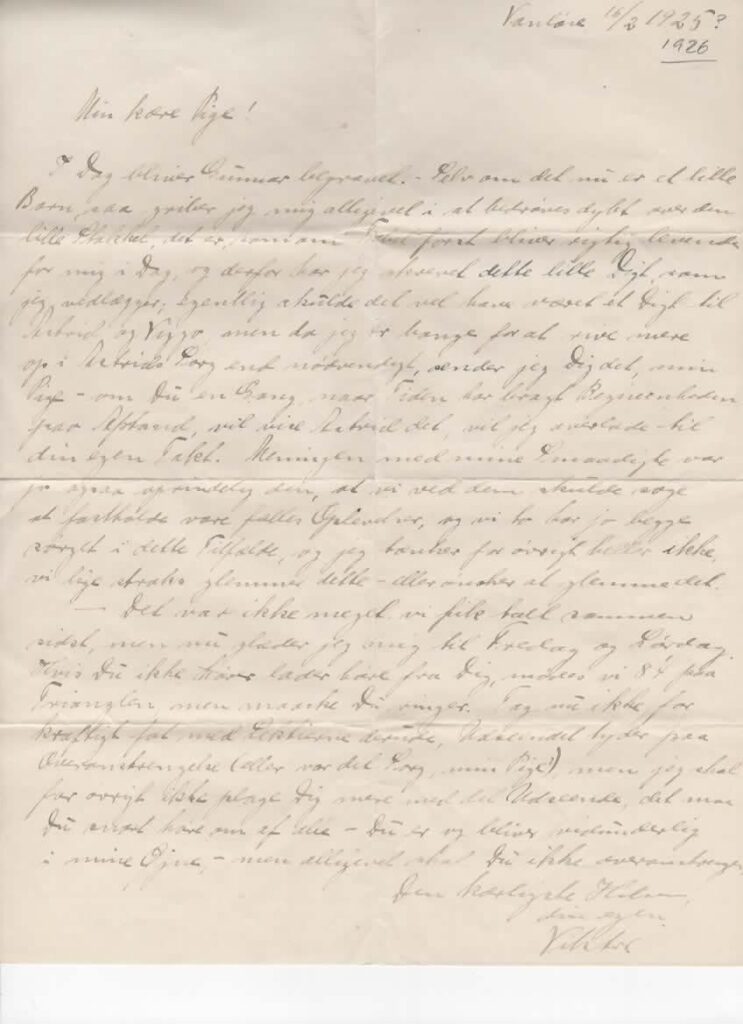 Vanløse 16/2 1925?
1926
Min kære Pige!
I Dag bliver Gunnar begravet. - Selv om det nu er et lille
Barn, saa griber jeg mig alligevel i at bedrøves dybt over den
lille Stakkel, det er, som om først bliver rigtig levende
for mig i Dag, og derfor har jeg skrevet dette lille Digt, som
jeg vedlægger; egentlig skulde det vel have været et Digt til
Astrid og Viggo men da jeg er bange for at rive mere
op i Astrids Sorg end nødvendigt, sender jeg Dig det, min
Pige - om Du en Gang, naar Tiden har bragt Begivenheden
paa Afstand, vil vise Astrid det, vil jeg overlade til
din egen Takt. Meningen med mine Smaadigte var
jo ogsaa oprindelig den, at vi ved dem skulde søge
at fastholde vore fælles Oplevelser, og vi to har jo begge
sørget i dette Tilfælde, og jeg tænker for øvrigt heller ikke,
vi lige straks glemmer dette - eller ønsker at glemme det.
- Det var ikke meget vi fik talt sammen
sidst, men nu glæder jeg mig til Fredag og Lørdag.
Hvis Du ikke lader høre fra Dig, mødes vi 8¼ paa
Trianglen men maaske Du ringer. Tag nu ikke for
kraftigt fat med Lektierne derude, Udseendet tyder paa
Overanstrengelse (eller var det Sorg, min Pige?), men jeg skal
for øvrigt ikke plage Dig mere med det Udseende, det maa
Du snart høre om af alle - Du er og bliver vidunderlig
i mine Øjne, - men alligevel skal Du ikke overanstrenges
Den kærligste Hilsen,
din egen